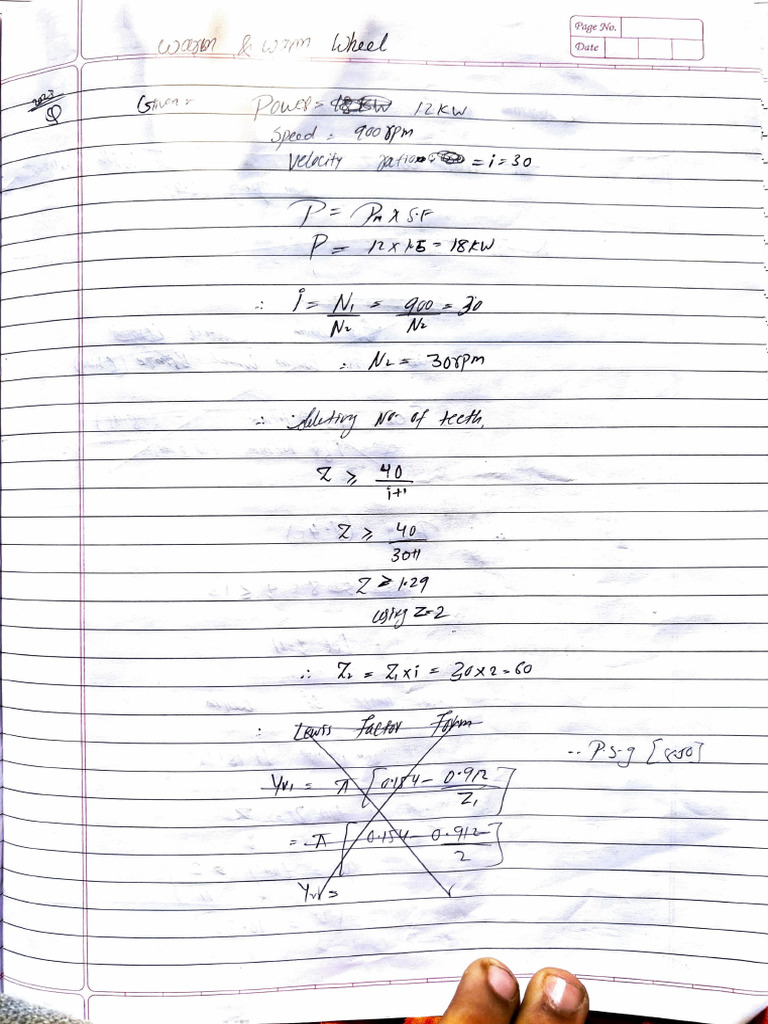 Page No.
Date
Worm & Worm Wheel
2023
Q
Given:- Power = 12 KW
Speed = 900 rpm
Velocity ratio = i = 30
P = Pn x S.F
P = 12 x 1.5 = 18 KW
∴ i = N1/N2 = 900/N2 = 30
∴ N2 = 30 rpm
∴ Selecting No. of teeth.
Z ≥ 40/i+1
Z ≥ 40/30+1
Z ≥ 1.29
using Z=2
∴ Z2 = Z1 x i = 30 x 2 = 60
∴ Lewis Factor Form
.. P.S.g
Yv1 = π [0.154 - 0.912/Z1]
= π [0.154 - 0.912/2]
Yv1 =